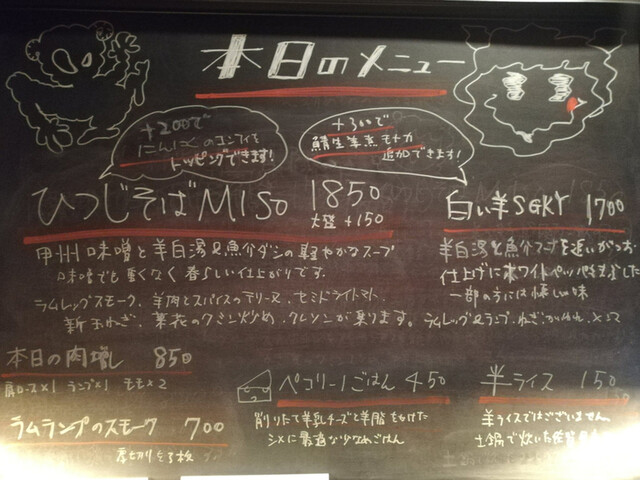 本日のメニュー
+200で
にんにくのコンフィを
トッピングできます!
+300で
鯖生羊羹モナカ
追加できます!
ひつじそばMISO 1850
大盛 +150
白い羊SGKY 1700
甲州味噌と羊白湯&魚介ダシの軽やかなスープ
味噌でも重くなく春らしい仕上がりです。
ラムレッグスモーク、羊肉とスパイスのテリーヌ、セミドライトマト
新玉ねぎ、菜花のクミン炒め、クレソンが乗ります。
羊白湯&魚介
仕上げにホワイトペッパー
一部の方には懐しい味
ラムレッグ&ランプ、ねぎ、
本日の肉増し 850
肩ロース×1 ランプ×1 モモ×2
ラムランプのスモーク 700
厚切り
ペコリーノごはん 450
削りたて羊乳チーズと羊脂をかけた
シメに最適な少なめごはん
半ライス 150
羊ライスではございません。
土鍋で炊いた佐賀